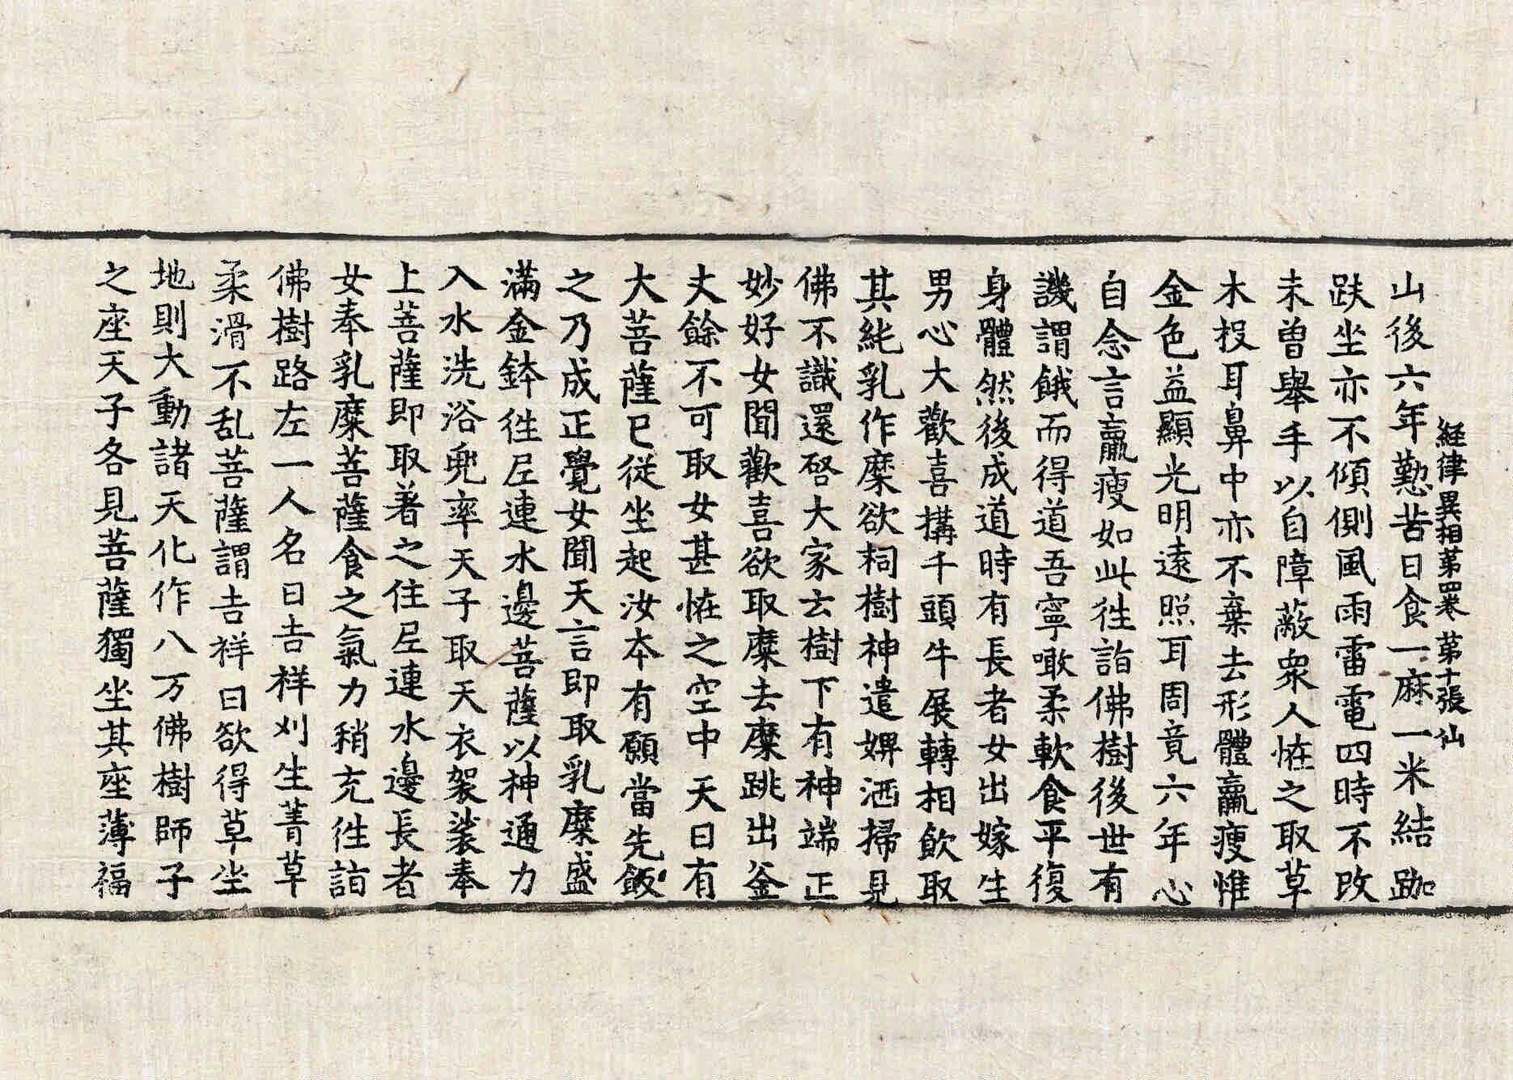 経律異相第四卷 第十張 仙
山後六年懃苦日食一麻一米結跏
趺坐亦不傾側風雨雷電四時不改
未曽舉手以自障蔽衆人恠之取草
木投耳鼻中亦不棄去形體羸瘦惟
金色益顯光明遠照耳周竟六年心
自念言羸瘦如此徃詣佛樹後世有
譏謂餓而得道吾寧噉柔軟食平復
身體然後成道時有長者女出嫁生
男心大歡喜搆千頭牛展轉相飲取
其純乳作糜欲祠樹神遣婢洒掃見
佛不識還啓大家云樹下有神端正
妙好女聞歡喜欲取糜去糜跳出釜
丈餘不可取女甚恠之空中天曰有
大菩薩已從坐起汝本有願當先飯
之乃成正覺女聞天言即取乳糜盛
滿金鉢徃尼連水邊菩薩以神通力
入水洗浴兜率天子取天衣袈裟奉
上菩薩即取著之住尼連水邊長者
女奉乳糜菩薩食之氣力稍充徃詣
佛樹路左一人名曰吉祥刈生菁草
柔滑不乱菩薩謂吉祥曰欲得草坐
地則大動諸天化作八万佛樹師子
之座天子各見菩薩獨坐其座薄福